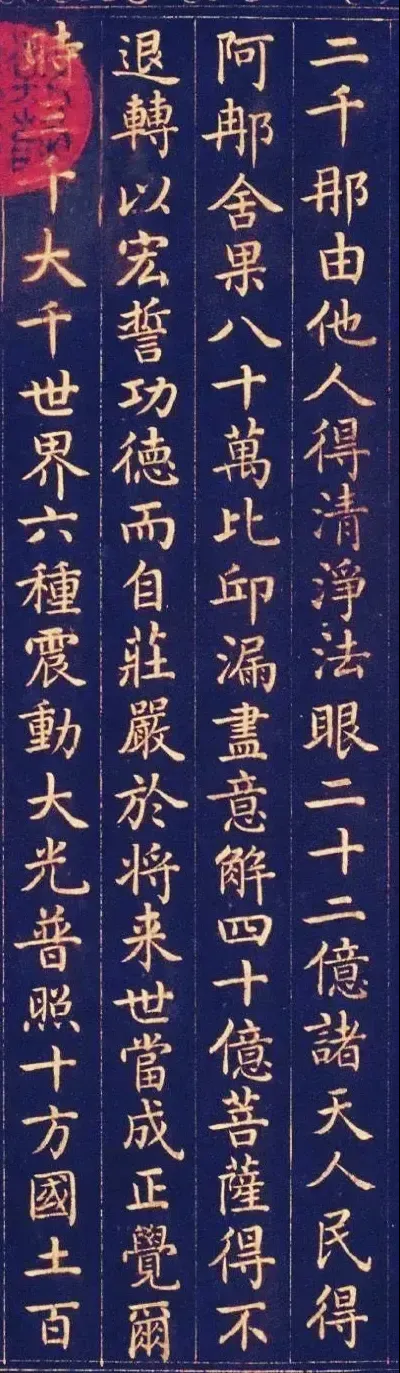 二千那由他人得清淨法眼二十二億諸天人民得
阿那舍果八十萬比邱漏盡意解四十億菩薩得不
退轉以宏誓功德而自莊嚴於將来世當成正覺爾
時三千大千世界六種震動大光普照十方國土百